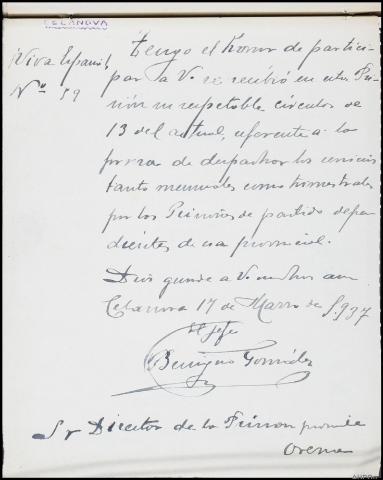 CELANOVA
¡Viva España!
Nº 59
Tengo el honor de partici-
par a V. se recibió en esta Pri-
sión su respetable circular de
13 del actual, referente a la
forma de despachar los servicios
tanto mensuales como trimestrales
por los Prisiones de partido depen
dientes de esa provincial.
Dios guarde a V. muchos
Celanova 17 de Marzo de 1.937
El Jefe
Benigno González
Sr Director de la Prision
Orense